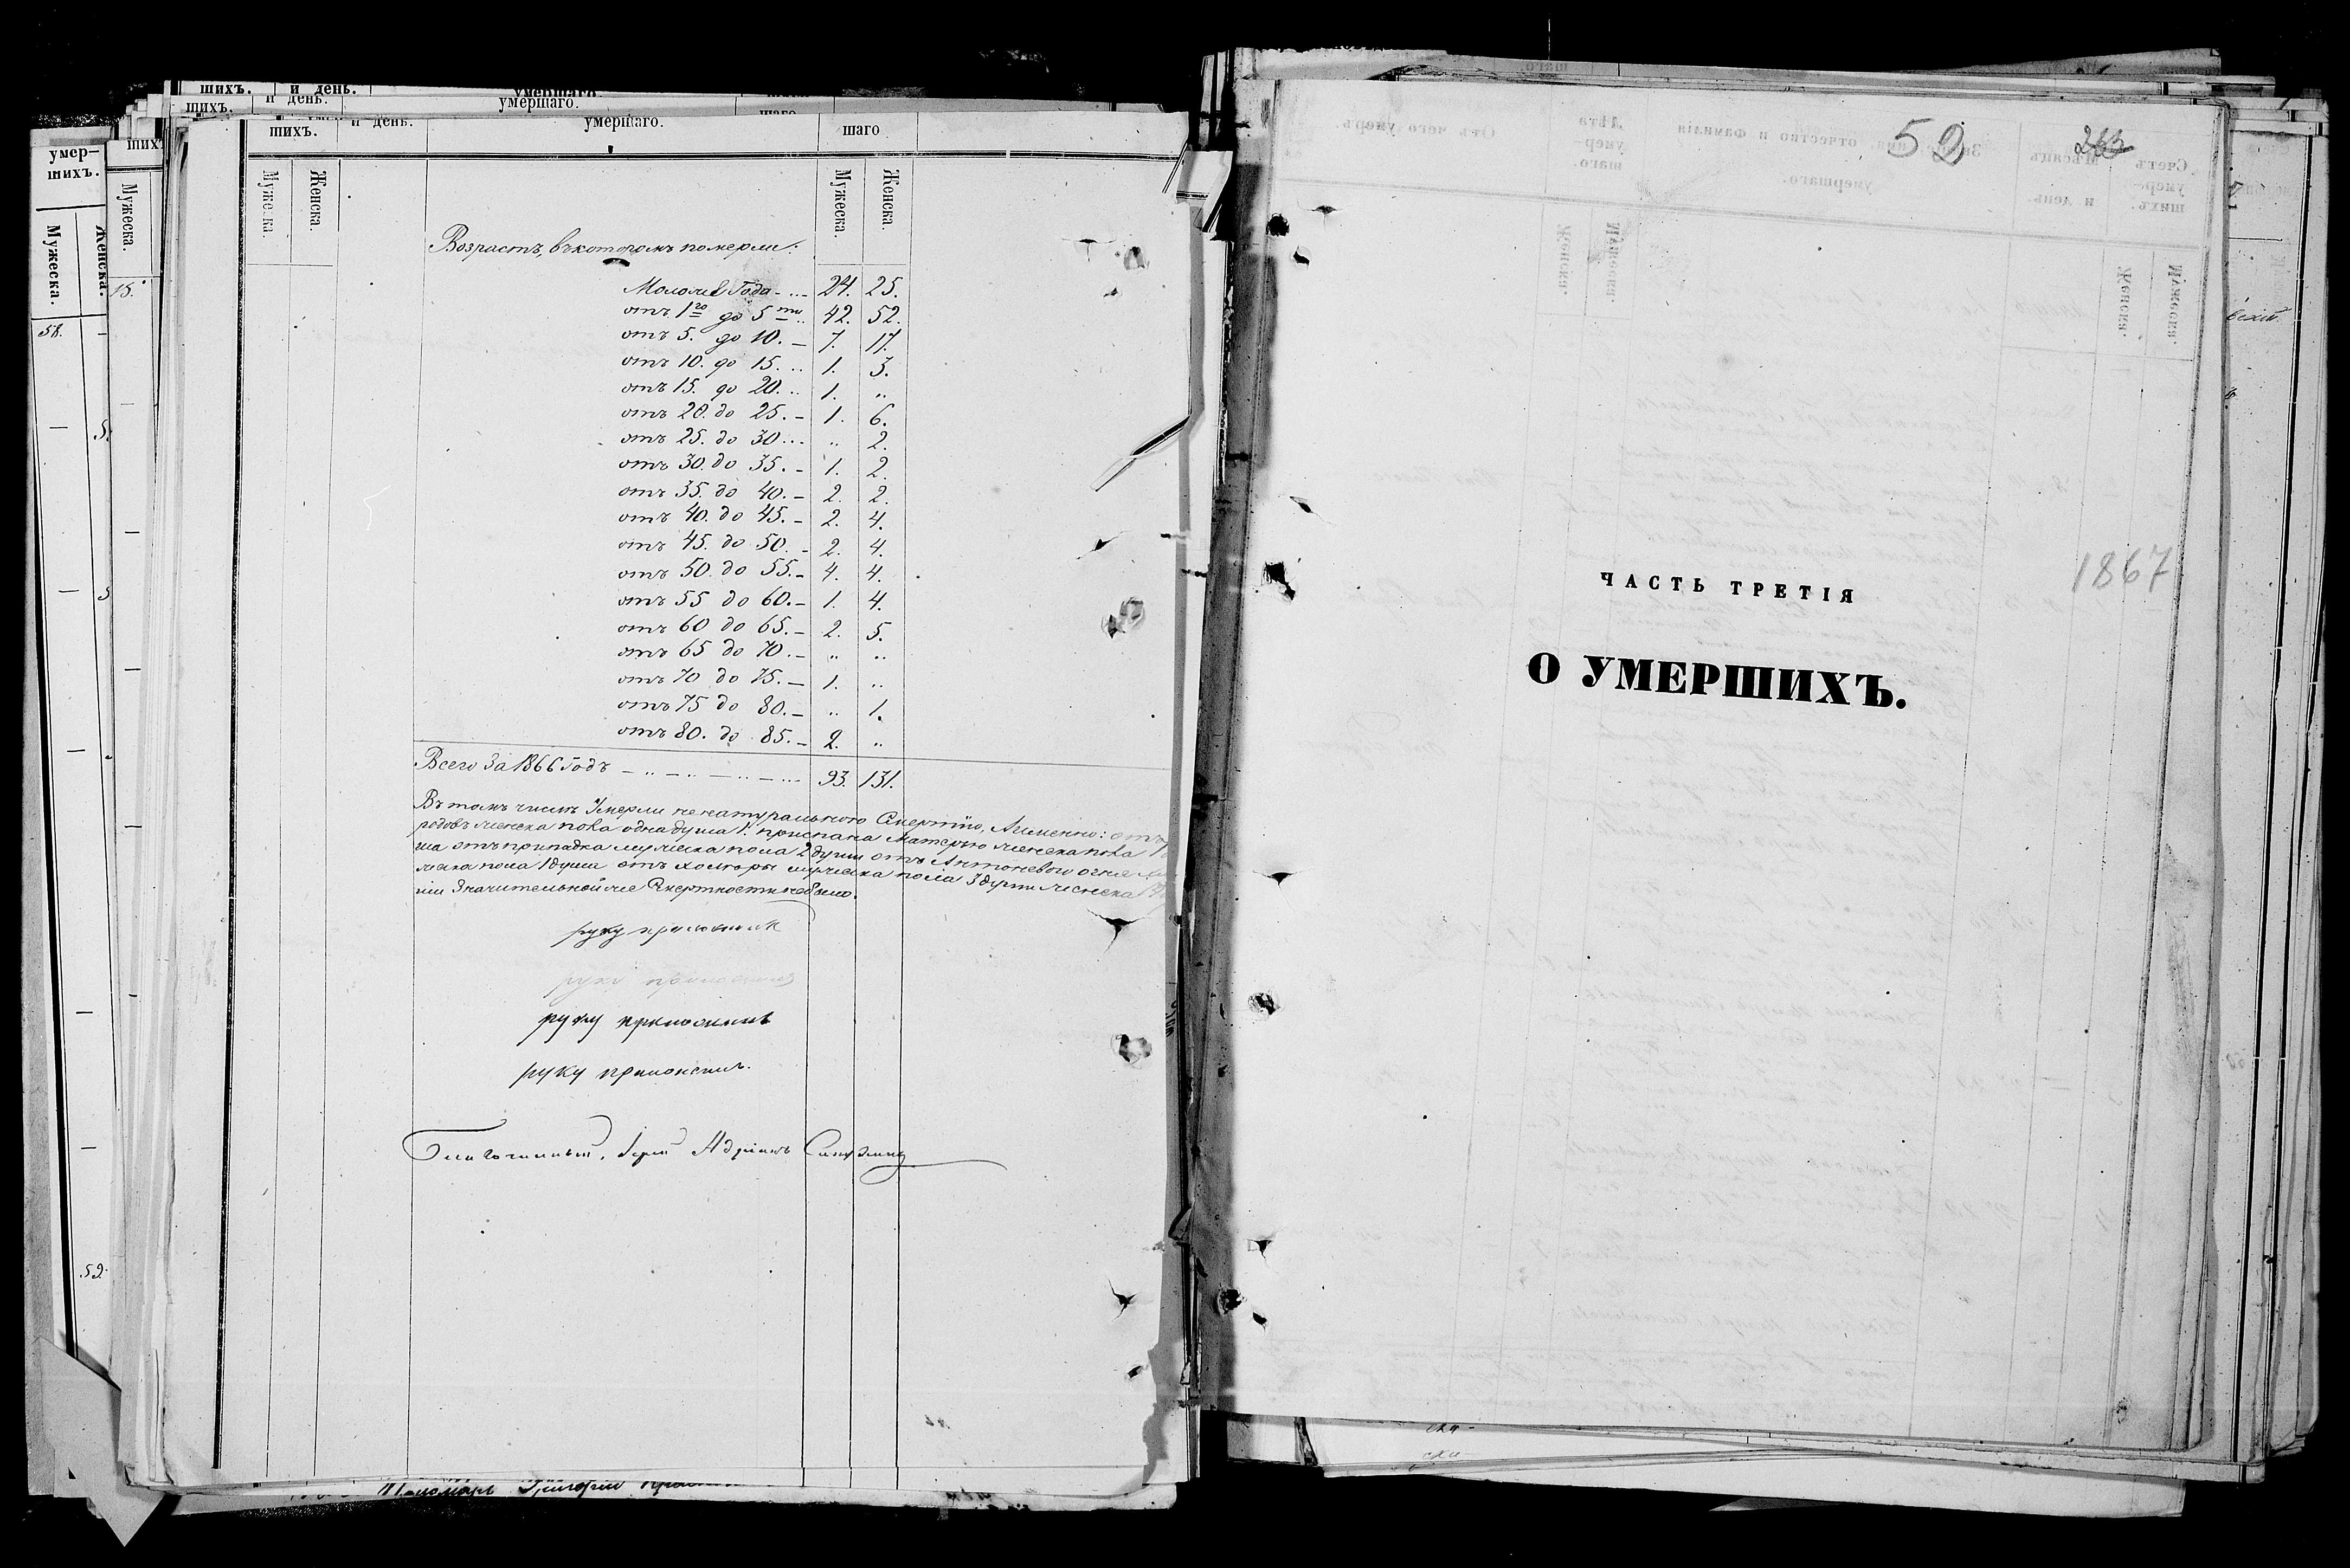 шихъ. и день. умершаго.
шихъ. и день. умершаго.
умер-
шихъ.
Мужеска. Женска.
Мужеска.
58.
15.
52.
шихъ. и день. умершаго. шаго
Мужеска. Женска. Мужеска. Женска.
Возрастъ, въ которомъ померли:
Моложе Года 24. 25.
отъ 1го до 5ти 42. 52.
отъ 5. до 10. 7. 17.
отъ 10. до 15. 1. 3.
отъ 15. до 20. 1. „
отъ 20. до 25. 1. 6.
отъ 25. до 30. „ 2.
отъ 30. до 35. 1. 2.
отъ 35. до 40. 2. 2.
отъ 40. до 45. 2. 4.
отъ 45. до 50. 2. 4.
отъ 50. до 55. 4. 4.
отъ 55 до 60. 1. 4.
отъ 60 до 65. 2. 5.
отъ 65 до 70. „ „
отъ 70 до 75. 1. „
отъ 75 до 80. „ 1.
отъ 80. до 85. 2. „
Всего за 1866 Годъ 93. 131.
Въ томъ числѣ Умерли ненатуральною Смертію, Аименно: отъ
родовъ женска пола одна душа 1. приспана Матерью женска пола 1
ша отъ припадка мужеска пола 2 души отъ Антоневого огня
жеска пола 1 душа отъ холеры мужеска пола 3 души женска
ши Значительной же Смертности небыло.
руку приложилъ
руку приложилъ
руку приложилъ
руку приложилъ.
Благочинный, Іерей Адріанъ
Пономарь Григорій
52
1867
ЧАСТЬ ТРЕТІЯ
О УМЕРШИХЪ.